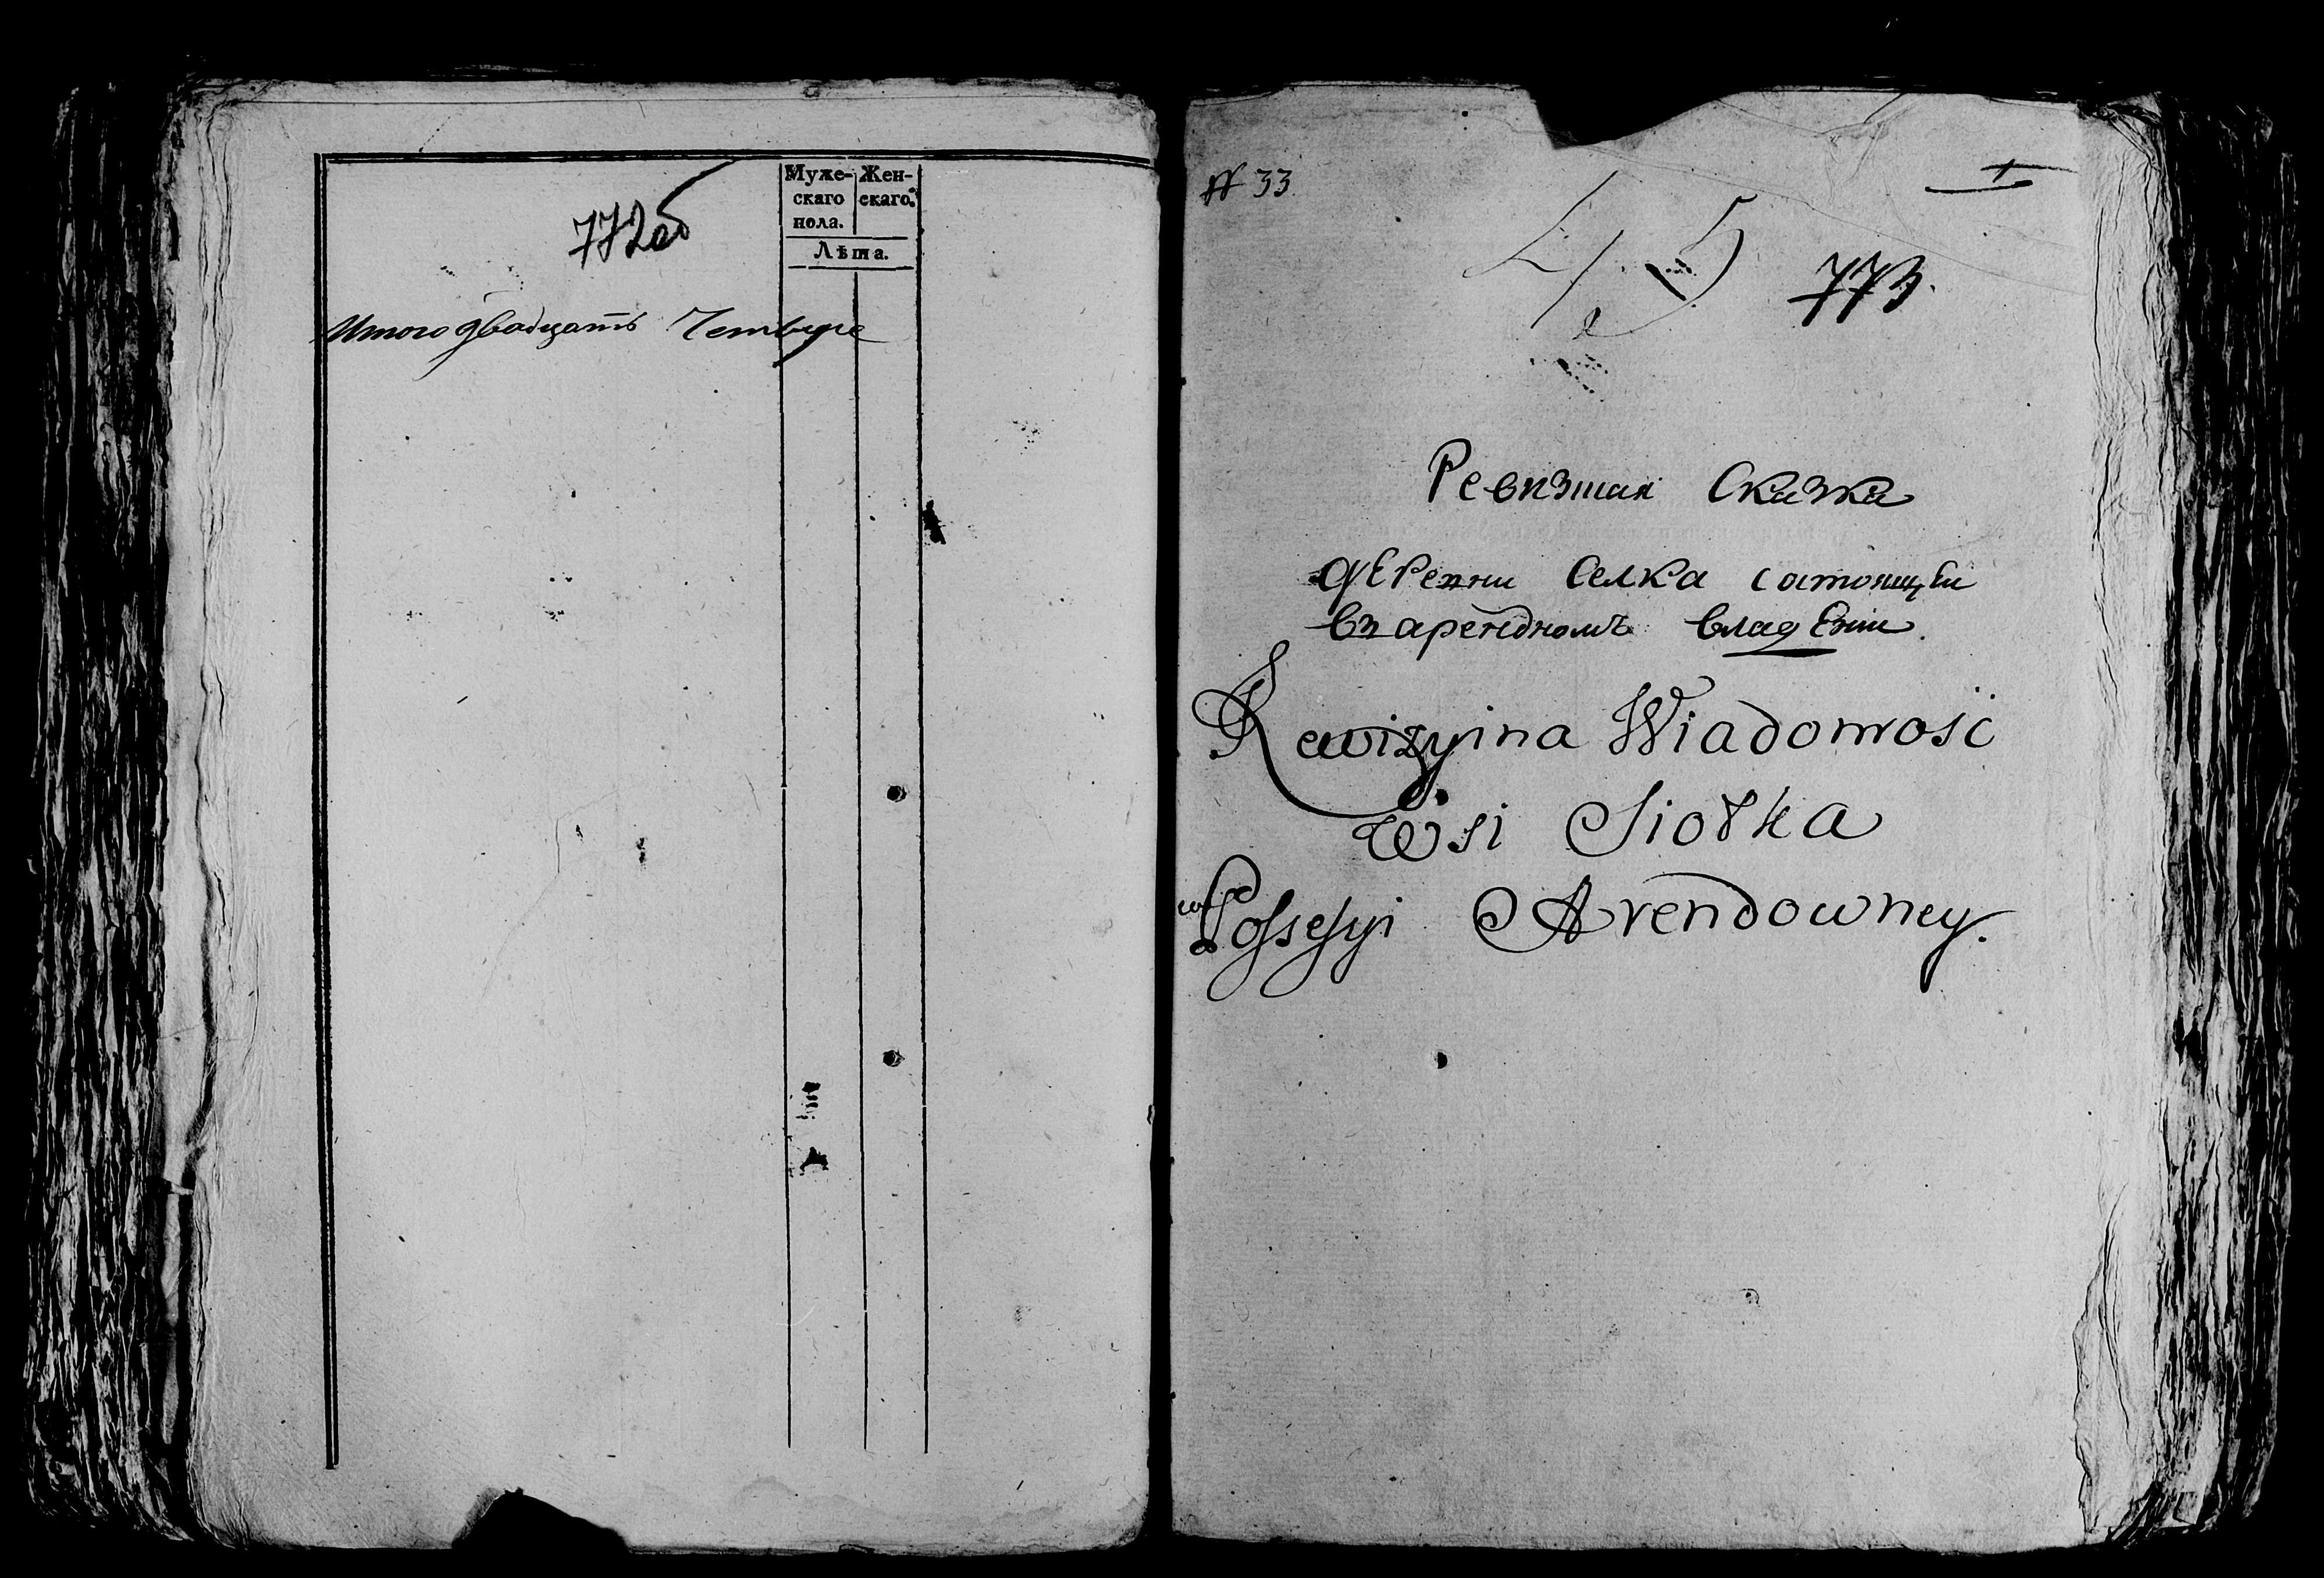 772об
Муже- Жен-
скаго скаго.
пола.
Лѣта.
Итого двадцать Четыре
№ 33
45
773.
Ревизшая Сказка
дЕРевни Селка состоящЕи
въ арендномъ владЕнии.
Rewizyina Wiadomość
wsi Siołka
w Possessyi Arendowney.